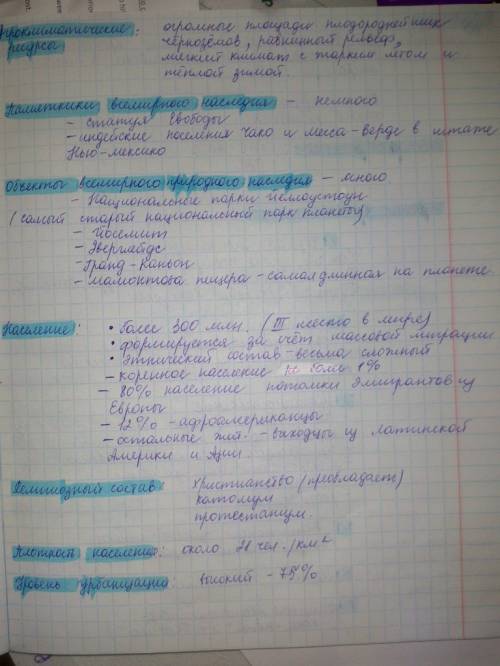 Агроклиматические ресурсы: огромные площади плодороднейших
чернозёмов, равнинный рельеф,
мягкий климат с жарким летом и
тёплой зимой.
Памятники всемирного наследия – немного
– статуя Свободы
– индейские поселения Чако и Меса-Верде в штате
Нью-Мексико
Объекты всемирного природного наследия – много
– Национальные парки Йеллоустоун
(самый старый национальный парк планеты)
– Йосемит
– Эверглейдс
– Гранд-Каньон
– Мамонтова пещера – самая длинная на планете
Население: • более 300 млн. (III место в мире)
• формируется за счёт массовой миграции
• Этнический состав – весьма сложный
– коренное население не боле 1%
– 80% население потомки Эмигрантов из
Европы
– 12% – афроамериканцы
– остальные жит. – выходцы из Латинской
Америки и Азии.
Религиозный состав: христианство (преобладает)
католицизм
протестантизм.
Плотность населения: около 28 чел./км²
Уровень урбанизации: высокий – 75%